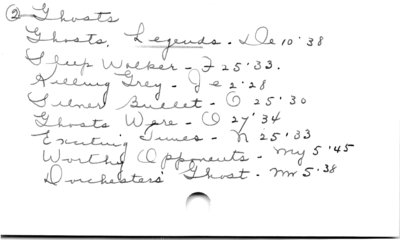 ② Ghosts
Ghosts, Legends - De 10 '38
Sleep Walker - F 25 '33.
Killing Grey - Je 2 '28
Silver Bullet - O 25 '30
Ghosts Were - O 27 '34
Exciting Times - N 25 '33
Worthy Opponents - My 5 '45
Dorchesters Ghost - Mr 5 '38